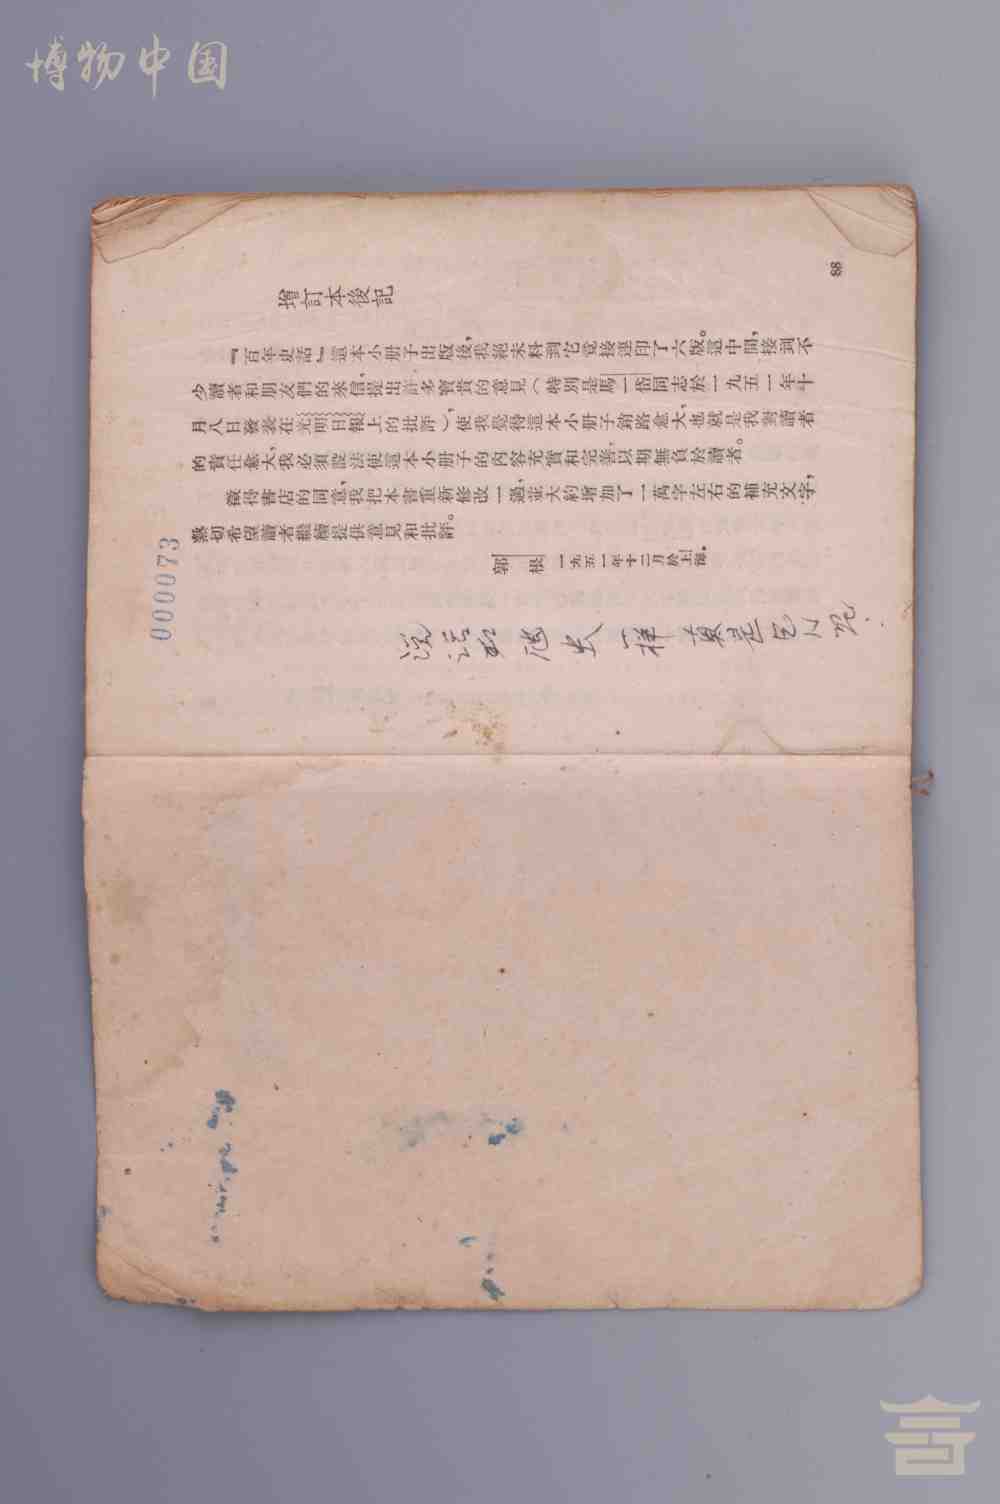 博物中国
88
增訂本後記
『百年史話』這本小册子出版後，我絕未料到它竟接連印了六版。這中間，接到不
少讀者和朋友們的來信，提出許多寶貴的意見（特別是馬一岱同志於一九五一年十
月八日發表在光明日報上的批評），使我覺得這本小册子銷路愈大，也就是我對讀者
的責任愈大，我必須設法使這本小册子的內容充實和完善，以期無負於讀者。
徵得書店的同意，我把本書重新修改一過，並大約增加了一萬字左右的補充文字，
熱切希望讀者繼續提供意見和批評。
郭根 一九五一年十二月於上海。
000073